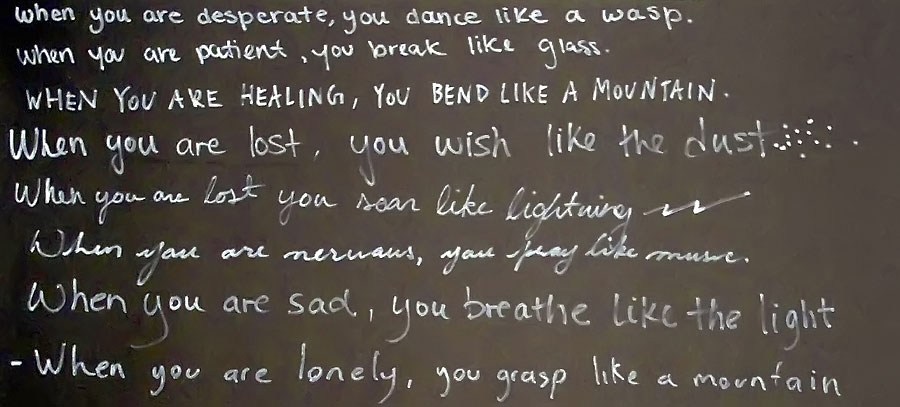 when you are desperate, you dance like a wasp.
when you are patient, you break like glass.
WHEN YOU ARE HEALING, YOU BEND LIKE A MOUNTAIN.
When you are lost, you wish like the dust
When you are lost you soar like lightning
When you are nervous, you pray like music.
When you are sad, you breathe like the light
- When you are lonely, you grasp like a mountain